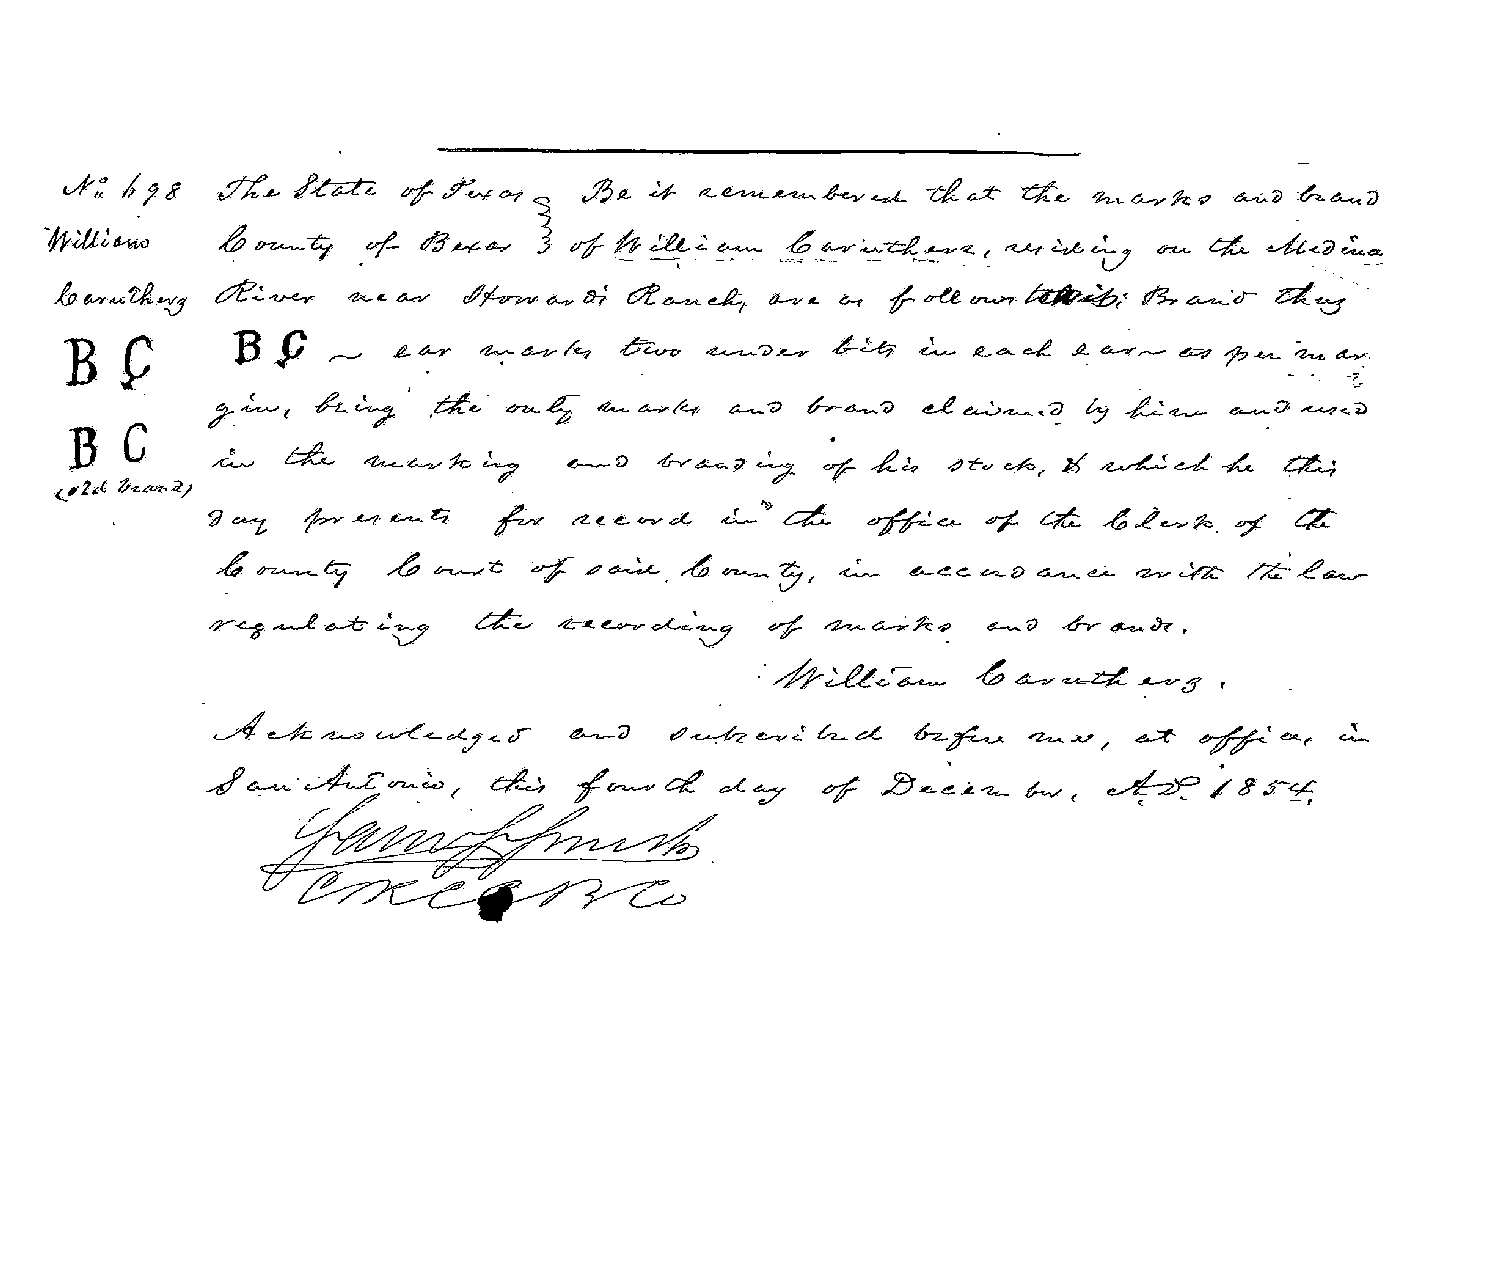 No. 698
William
Caruthers
B C
B C
(old brand)
The State of Texas } Be it remembered that the marks and brand
County of Bexar } of William Caruthers, residing on the Medina
River near Howards Ranch, are as follows: Brand thus
B C ~ ear marks two under bits in each ear as per mar
gin, being the only marks and brand claimed by him and used
in the marking and branding of his stock, & which he this
day presents for record in the office of the Clerk of the
County Court of said County, in accordance with the law
regulating the recording of marks and brands.
William Caruthers.
Acknowledged and subscribed before me, at office, in
San Antonio, this fourth day of December, A.D. 1854.
Sam S Smith
C B Co